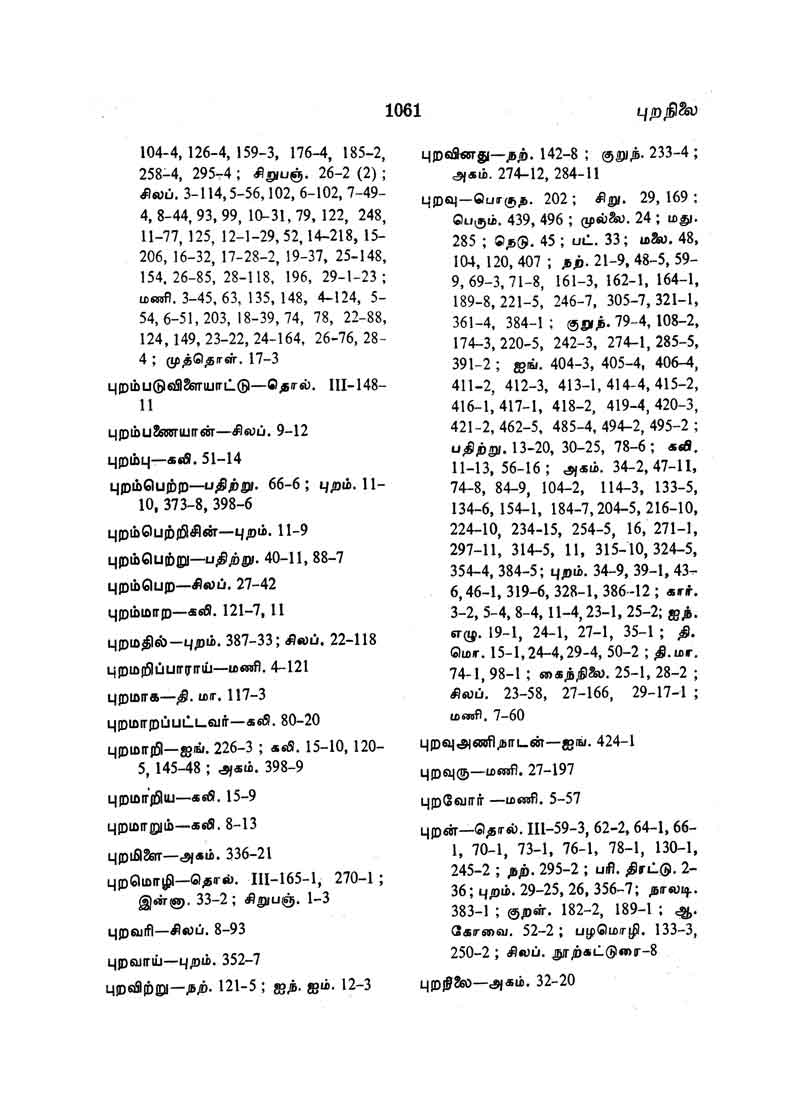 1061
புறநிலை
104-4, 126-4, 159-3, 176-4, 185-2,
258-4, 295-4 ; சிறுபஞ். 26-2 (2) ;
சிலப். 3-114, 5-56, 102, 6-102, 7-49-
4, 8-44, 93, 99, 10-31, 79, 122, 248,
11-77, 125, 12-1-29, 52, 14-218, 15-
206, 16-32, 17-28-2, 19-37, 25-148,
154, 26-85, 28-118, 196, 29-1-23 ;
மணி. 3-45, 63, 135, 148, 4-124, 5-
54, 6-51, 203, 18-39, 74, 78, 22-88,
124, 149, 23-22, 24-164, 26-76, 28-
4 ; முத்தொள். 17-3
புறம்படுவிளையாட்டு—தொல். III-148-
11
புறம்பணையான்—சிலப். 9-12
புறம்பு—கலி. 51-14
புறம்பெற்ற—பதிற்று. 66-6 ; புறம். 11-
10, 373-8, 398-6
புறம்பெற்றிசின்—புறம். 11-9
புறம்பெற்று—பதிற்று. 40-11, 88-7
புறம்பெற—சிலப். 27-42
புறம்மாற—கலி. 121-7, 11
புறமதில்—புறம். 387-33 ; சிலப். 22-118
புறமறிப்பாராய்—மணி. 4-121
புறமாக—தி. மா. 117-3
புறமாறப்பட்டவர்—கலி. 80-20
புறமாறி—ஐங். 226-3 ; கலி. 15-10, 120-
5, 145-48 ; அகம். 398-9
புறமாறிய—கலி. 15-9
புறமாறும்—கலி. 8-13
புறமிளை—அகம். 336-21
புறமொழி—தொல். III-165-1, 270-1 ;
இன்னா. 33-2 ; சிறுபஞ். 1-3
புறவரி—சிலப். 8-93
புறவாய்—புறம். 352-7
புறவிற்று—நற். 121-5 ; ஐந். ஐம். 12-3
புறவினது—நற். 142-8 ; குறுந். 233-4 ;
அகம். 274-12, 284-11
புறவு—பொருந. 202 ; சிறு. 29, 169 :
பெரும். 439, 496 ; முல்லை. 24 ; மது.
285 ; நெடு. 45 ; பட். 33 ; மலை. 48,
104, 120, 407 ; நற். 21-9, 48-5, 59-
9, 69-3, 71-8, 161-3, 162-1, 164-1,
189-8, 221-5, 246-7, 305-7, 321-1,
361-4, 384-1 ; குறுந். 79-4, 108-2,
174-3, 220-5, 242-3, 274-1, 285-5,
391-2 ; ஐங். 404-3, 405-4, 406-4,
411-2, 412-3, 413-1, 414-4, 415-2,
416-1, 417-1, 418-2, 419-4, 420-3,
421-2, 462-5, 485-4, 494-2, 495-2 ;
பதிற்று. 13-20, 30-25, 78-6 ; கலி.
11-13, 56-16 ; அகம். 34-2, 47-11,
74-8, 84-9, 104-2, 114-3, 133-5,
134-6, 154-1, 184-7, 204-5, 216-10,
224-10, 234-15, 254-5, 16, 271-1,
297-11, 314-5, 11, 315-10, 324-5,
354-4, 384-5 ; புறம். 34-9, 39-1, 43-
6, 46-1, 319-6, 328-1, 386-12 ; கார்.
3-2, 5-4, 8-4, 11-4, 23-1, 25-2; ஐந்.
எழு. 19-1, 24-1, 27-1, 35-1 ; தி.
மொ. 15-1, 24-4, 29-4, 50-2 ; தி.மா.
74-1, 98-1 ; கைந்நிலை. 25-1, 28-2 ;
சிலப். 23-58, 27-166, 29-17-1 ;
மணி. 7-60
புறவுஅணிநாடன்—ஐங். 424-1
புறவுரு—மணி. 27-197
புறவோர் —மணி. 5-57
புறன்—தொல். III-59-3, 62-2, 64-1, 66-
1, 70-1, 73-1, 76-1, 78-1, 130-1,
245-2 ; நற். 295-2 ; பரி. திரட்டு. 2-
36 ; புறம். 29-25, 26, 356-7; நாலடி.
383-1 ; குறள். 182-2, 189-1 ; ஆ.
கோவை. 52-2 ; பழமொழி. 133-3,
250-2 ; சிலப். நூற்கட்டுரை-8
புறநிலை—அகம். 32-20